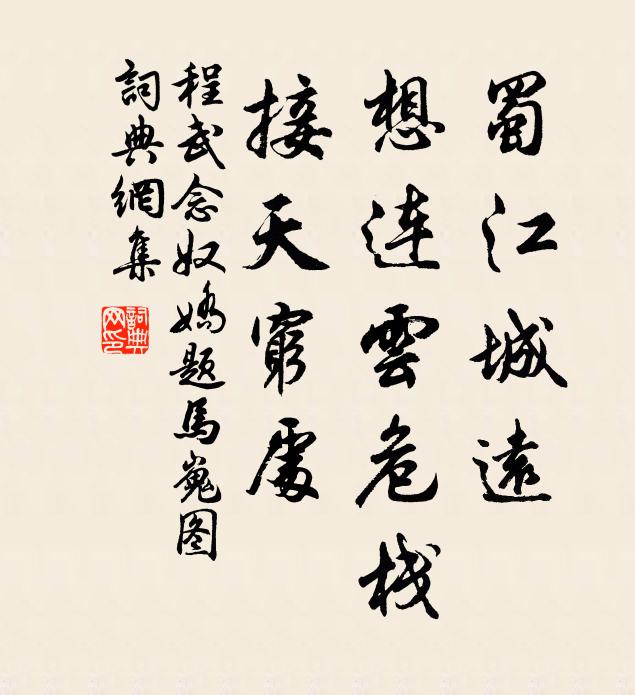 蜀江城遠
想連雲危栈
接天窮處
程武念奴嬌題馬嵬图
詞典網集
詞典
网印